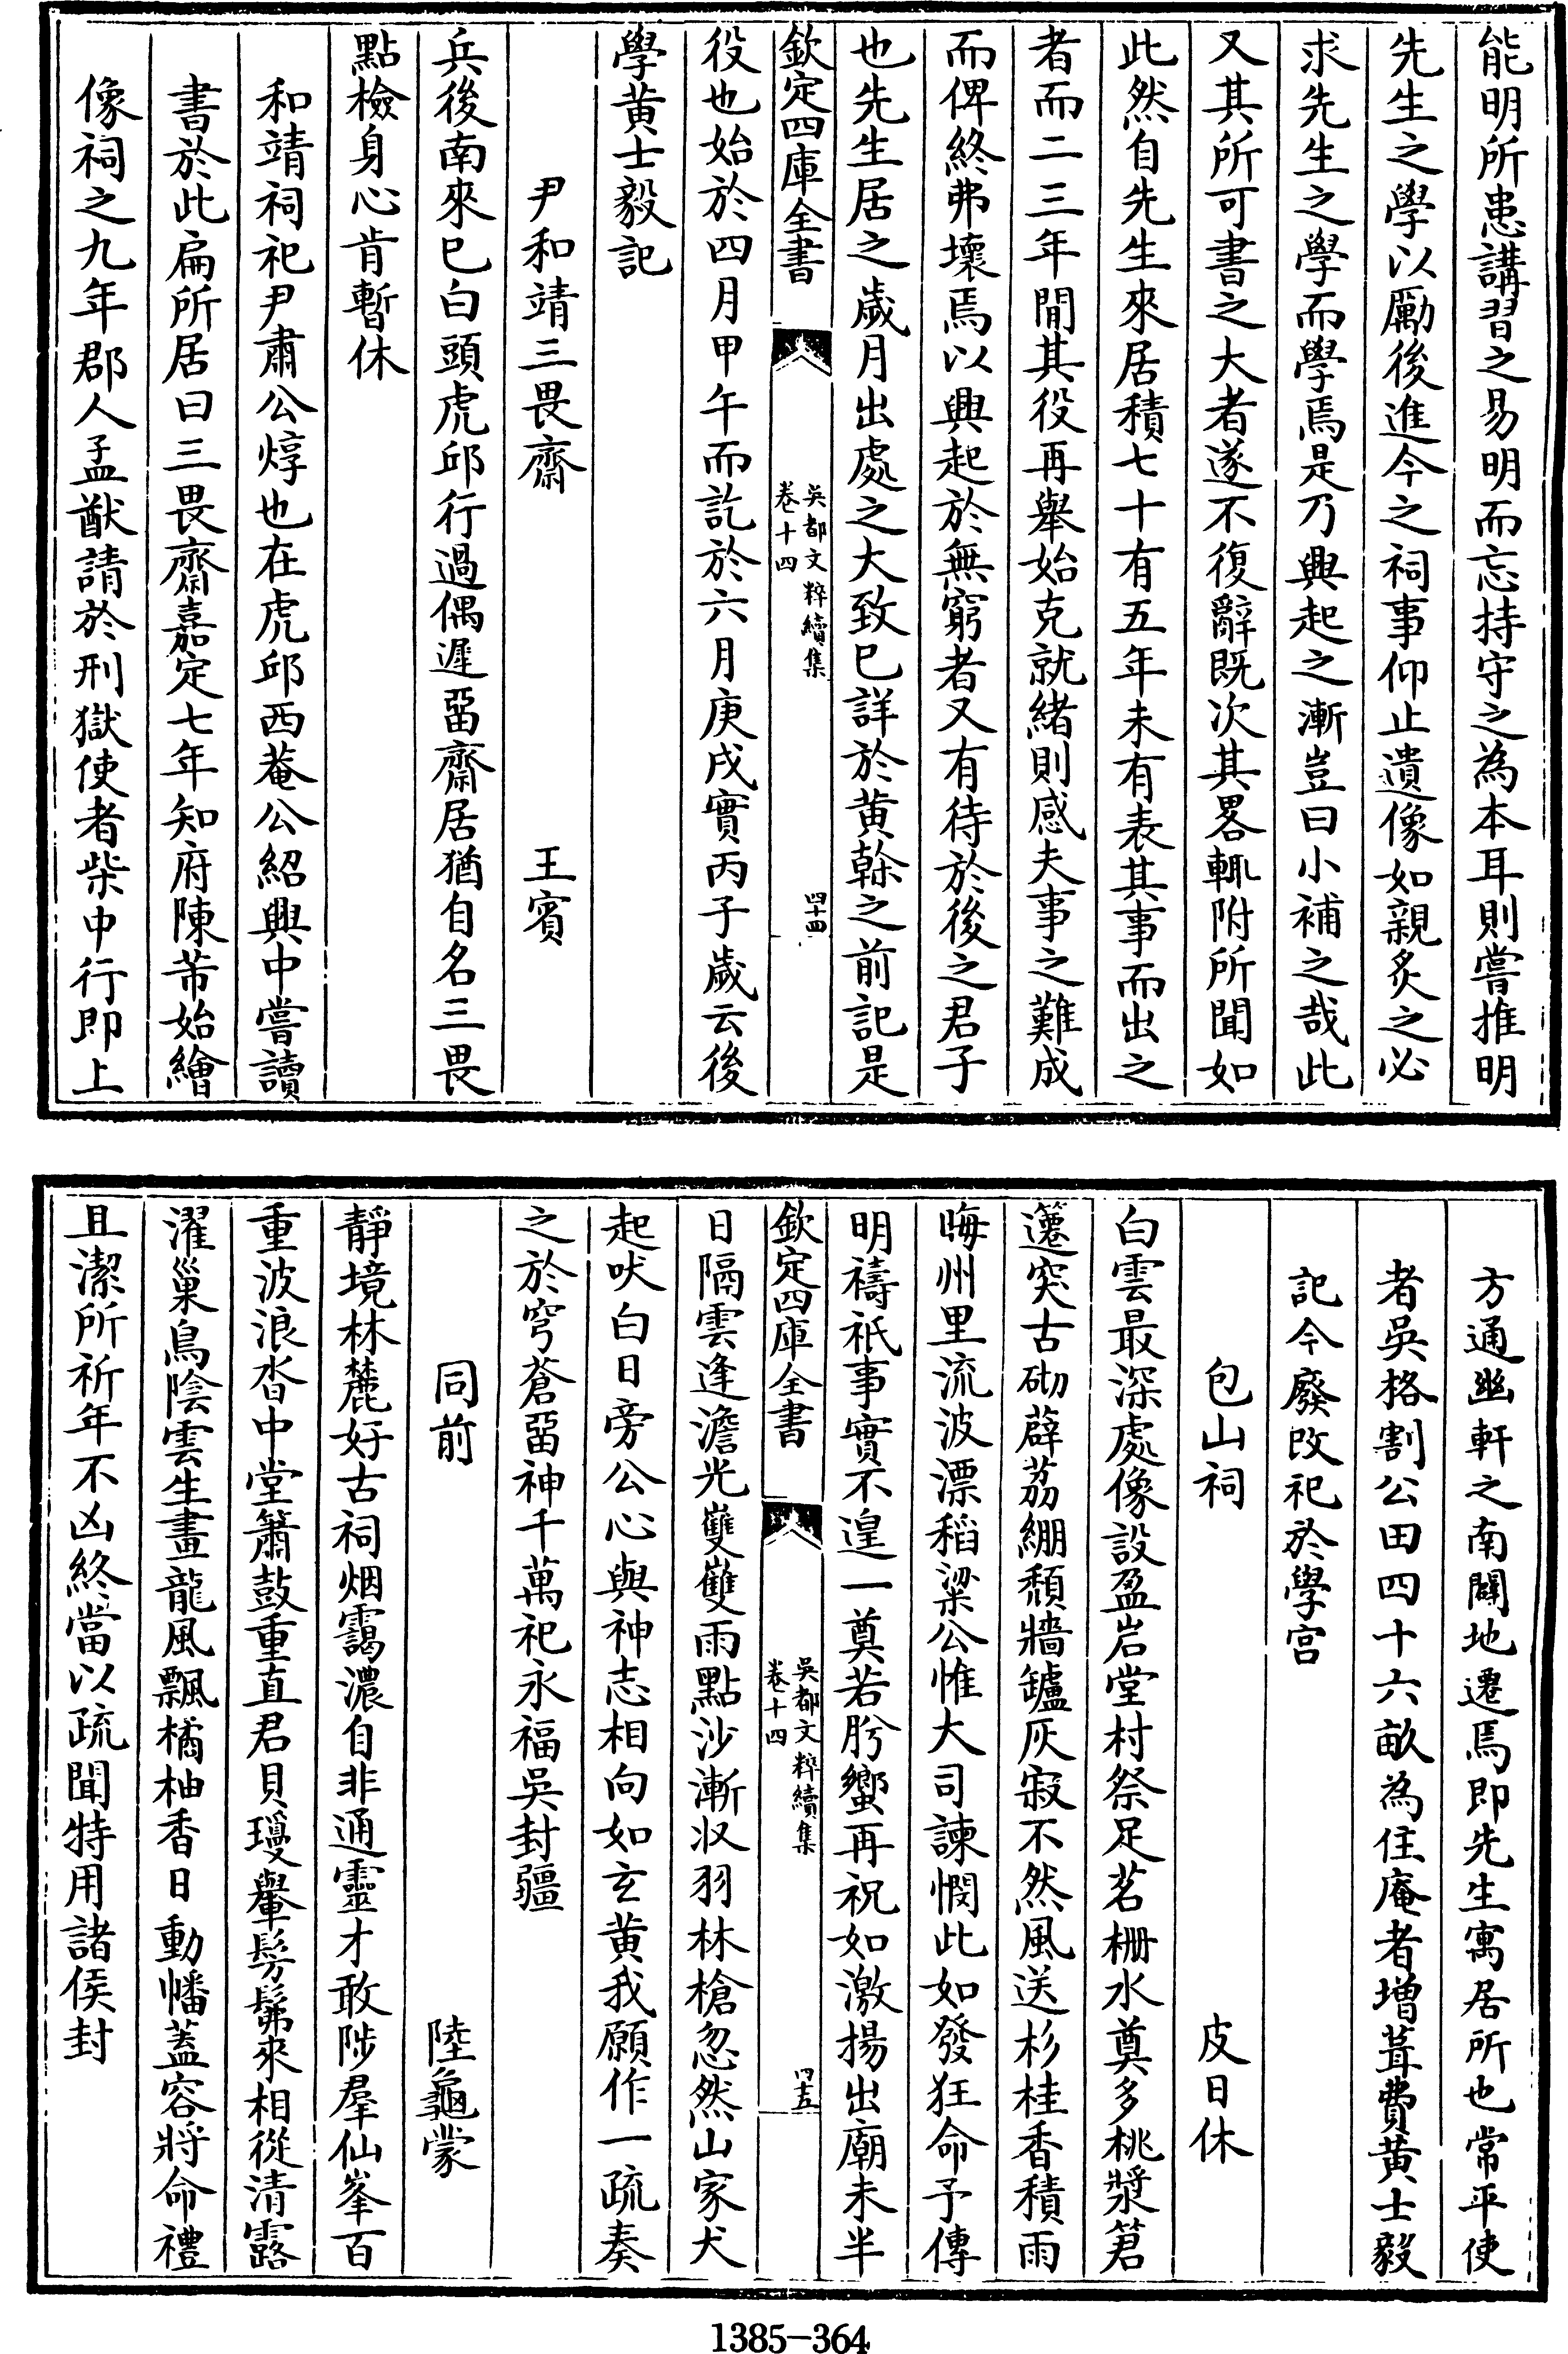 能明所患講習之易明而忘持守之為本耳則嘗推明
先生之學以勵後進今之祠事仰止遺像如親炙之必
求先生之學而學焉是乃興起之漸豈曰小補之哉此
又其所可書之大者遂不復辭既次其畧輒附所聞如
此然自先生來居積七十有五年未有表其事而出之
者而二三年間其役再舉始克就緒則感夫事之難成
而俾終弗壞焉以興起於無窮者又有待於後之君子
也先生居之歲月出處之大致已詳於黄榦之前記是
欽定四庫全書
吳都文粹續集
卷十四
四十四
役也始於四月甲午而訖於六月庚戌實丙子歲云後
學黄士毅記
尹和靖三畏齋 王賓
兵後南來已白頭虎邱行過偶遲畱齋居猶自名三畏
點檢身心肯暫休
和靖祠祀尹肅公焞也在虎邱西菴公紹興中嘗讀
書於此扁所居曰三畏齋嘉定七年知府陳芾始繪
像祠之九年郡人孟猷請於刑獄使者柴中行即上
方通幽軒之南闢地遷焉即先生寓居所也常平使
者吳格割公田四十六畝為住庵者增葺費黄士毅
記今廢改祀於學宫
包山祠 皮日休
白雲最深處像設盈岩堂村祭足茗栅水奠多桃漿箬
籩突古砌薜荔繃頹牆鑪灰寂不然風送杉桂香積雨
晦州里流波漂稻粱公惟大司諫憫此如發狂命予傳
明禱祇事實不遑一奠若肹蠁再祝如激揚出廟未半
欽定四庫全書
吳都文粹續集
卷十四
四十五
日隔雲逢澹光雙雙雨點沙漸收羽林槍忽然山家犬
起吠白日旁公心與神志相向如玄黄我願作一疏奏
之於穹蒼畱神千萬祀永福吳封疆
同前 陸龜蒙
靜境林麓好古祠烟靄濃自非通靈才敢陟羣仙峯百
重波浪沓中堂簫鼓重直君貝瓊轝髣髴來相從清露
濯巢鳥陰雲生晝龍風飄橘柚香日動幡蓋容將命禮
且潔所祈年不凶終當以疏聞特用諸侯封
1385-364